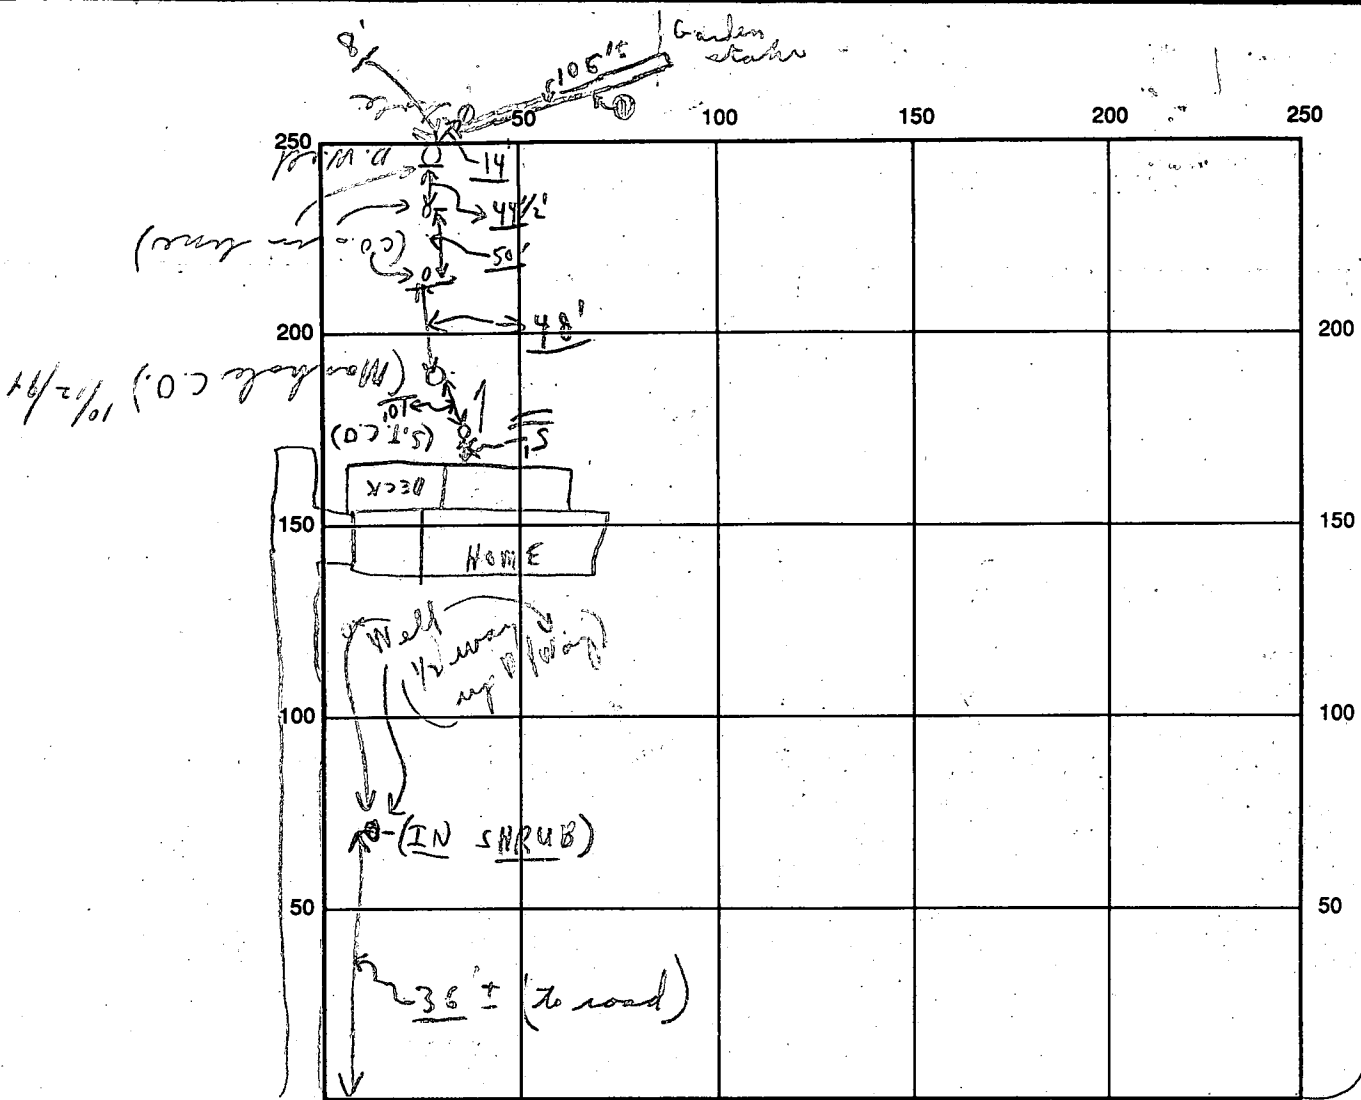 8'
105'±
Garden
stake
50 100 150 200 250
250
D. Well
14
44 1/2'
(C.O. in line)
50'
200 200
48'
(Manhole C.O.) 10/12/94
10'
(S.T.C.O)
5'
DECK
150 150
HOME
Well
1/2 way
up
100 100
(IN SHRUB)
50 50
36'± (to road)